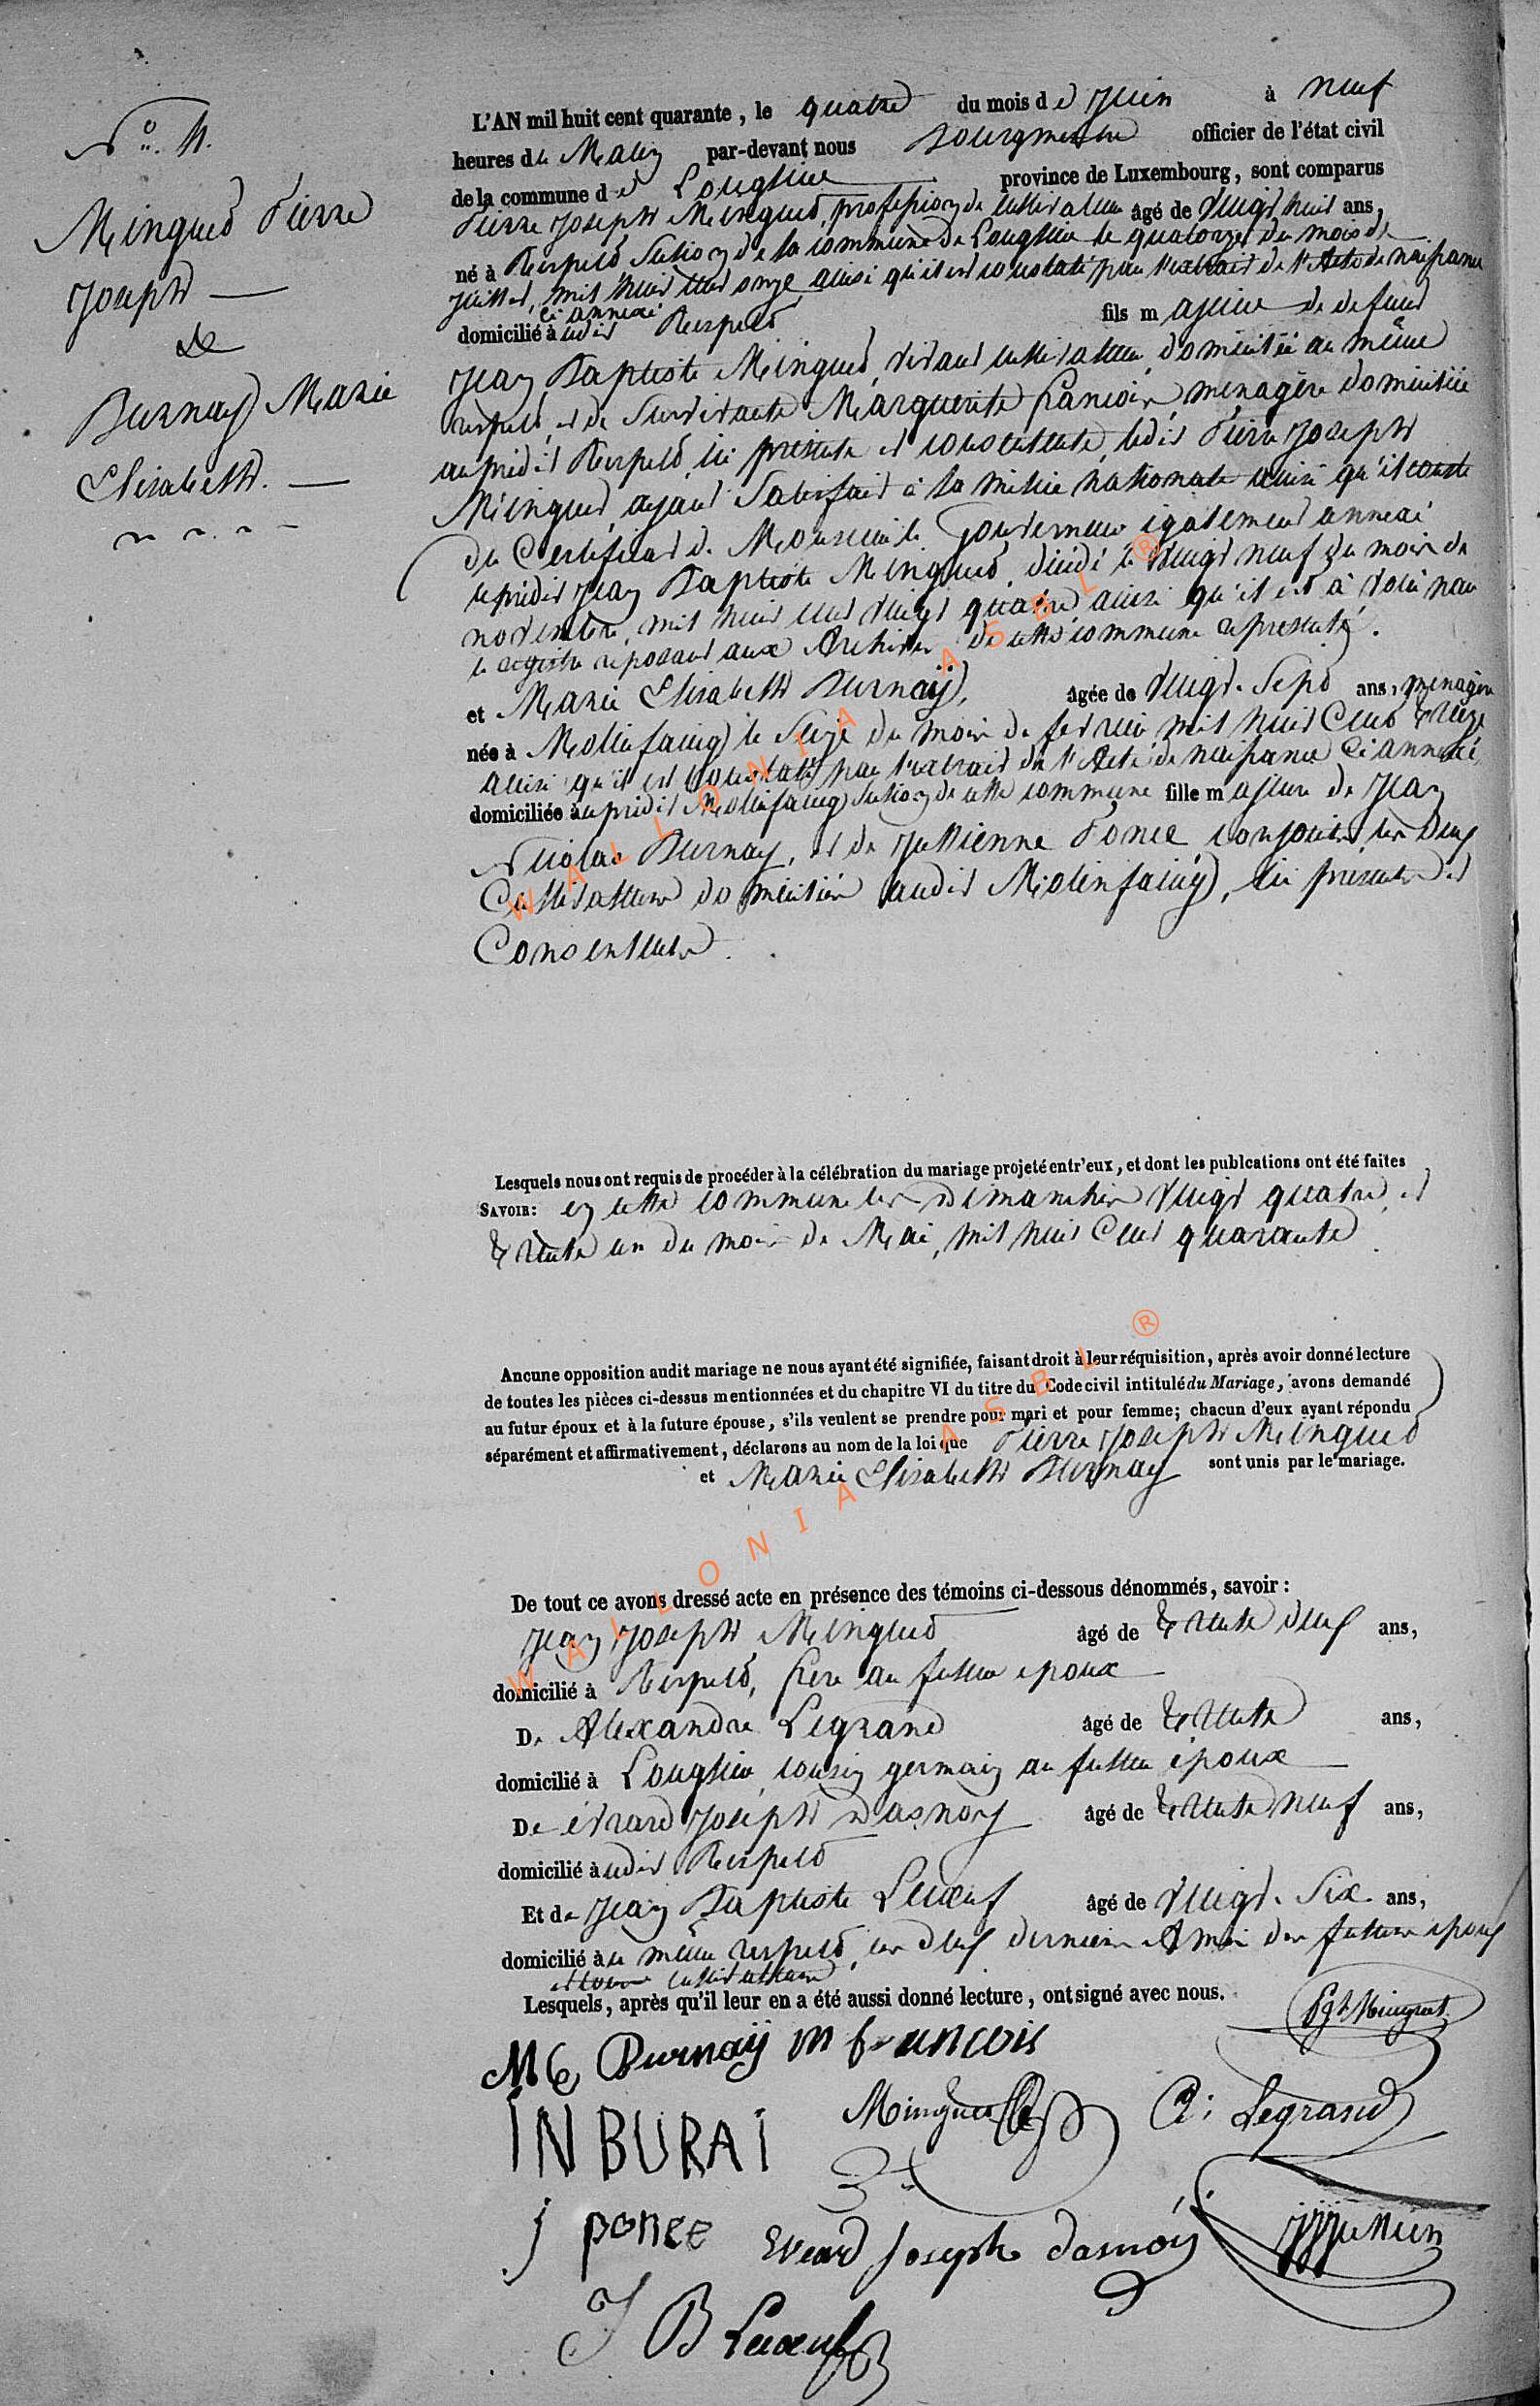 No. 4.
Mingued Pierre
Joseph —
&
Burnay Marie
Elisabeth. —
L'AN mil huit cent quarante, le quatre du mois de Juin à neuf
heures du Matin par-devant nous Bourgmestre officier de l'état civil
de la commune de Longlier province de Luxembourg, sont comparus
Pierre Joseph Mingued, profession de cultivateur âgé de vingt huit ans,
né à Respelt Section de la commune de Longlier le quatorze du mois de
Juillet, mil huit cent onze, ainsi qu'il est constaté par l'extrait de l'Acte de naissance
ci annexé
domicilié à udit Respelt fils majeur de defunt
Jean Baptiste Mingued, vivant cultivateur, domicilié au même
respelt, et de Survivante Marguerite francois ménagère domiciliée
au prédit Respelt, ici présente et consentante, ledit Pierre Joseph
Mingued, ayant Satisfait à la milice nationale ainsi qu'il conste
du Certificat de Monsieur le Gouverneur également annexé
le prédit Jean Baptiste Mingued, décédé le vingt neuf du mois de
novembre, mil huit cent vingt quatre ainsi qu'il est à voir par
le registre reposant aux Archives de cette commune représenté.
et Marie Elisabeth Burnaÿ, âgée de vingt-Sept ans, ménagère
née à Molinfaing le Seize du mois de fevrier mil huit Cent treize
ainsi qu'il est constaté par l'extrait de l'Acte de naissance Ci annexé,
domiciliée au prédit Molinfaing Section de cette commune fille majeure de Jean
Nicolas Burnay, et de Jullienne Ponce conjoints les deux
Cultivateurs domiciliés audit Molinfaing, ici présents et
Consentants.
Lesquels nous ont requis de procéder à la célébration du mariage projeté entr'eux, et dont les publcations ont été faites
SAVOIR: en cette commune les Dimanches vingt quatre, et
trente un du mois de Mai, mil huit Cent quarante.
Ancune opposition audit mariage ne nous ayant été signifiée, faisant droit à leur réquisition, après avoir donné lecture
de toutes les pièces ci-dessus mentionnées et du chapitre VI du titre du Code civil intitulé du Mariage, avons demandé
au futur époux et à la future épouse, s'ils veulent se prendre pour mari et pour femme; chacun d'eux ayant répondu
séparément et affirmativement, déclarons au nom de la loi que Pierre Joseph Mingued
et Marie Elisabeth Burnay sont unis par le mariage.
De tout ce avons dressé acte en présence des témoins ci-dessous dénommés, savoir:
Jean Joseph Mingued âgé de trente deux ans,
domicilié à Respelt, frère au futur epoux
De Alexandre Legrand âgé de trente ans,
domicilié à Longlier, cousin germain au futur époux
De évrard Joseph Dasnoy âgé de trente neuf ans,
domicilié à udit Respelt
Et de Jean Baptiste Lecœuf âgé de vingt-Six ans,
domicilié à u même respelt, les deux derniers Amis des futurs epoux
et tous cultivateurs
Lesquels, après qu'il leur en a été aussi donné lecture, ont signé avec nous.
PJh Minguet
ME Burnaÿ m francois
IN BURAI Mingued A: Legrand
j ponce Evrard Joseph dasnoy
J B Lecœuf
WALLONIA ASBL ®
WALLONIA ASBL ®